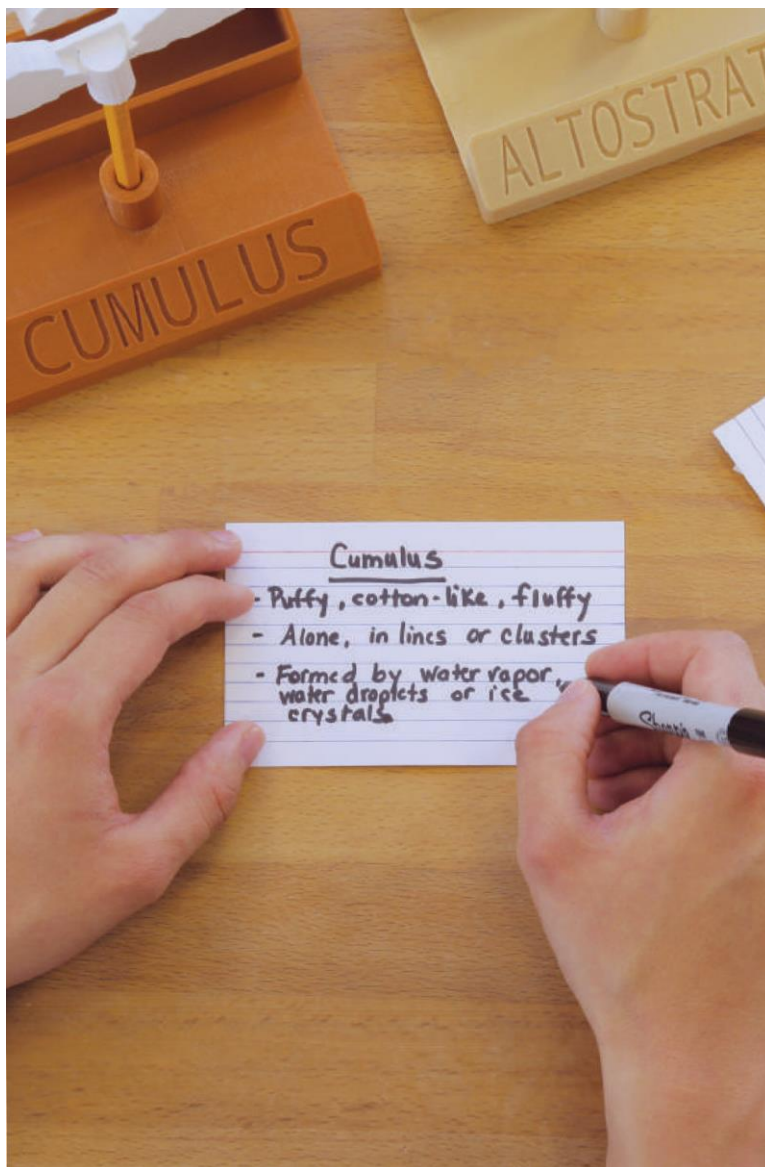 CUMULUS
ALTOSTRAT
Cumulus
- Puffy, cotton-like, fluffy
- Alone, in lines or clusters
- Formed by water vapor,
water droplets or ice
crystals
Sharpie